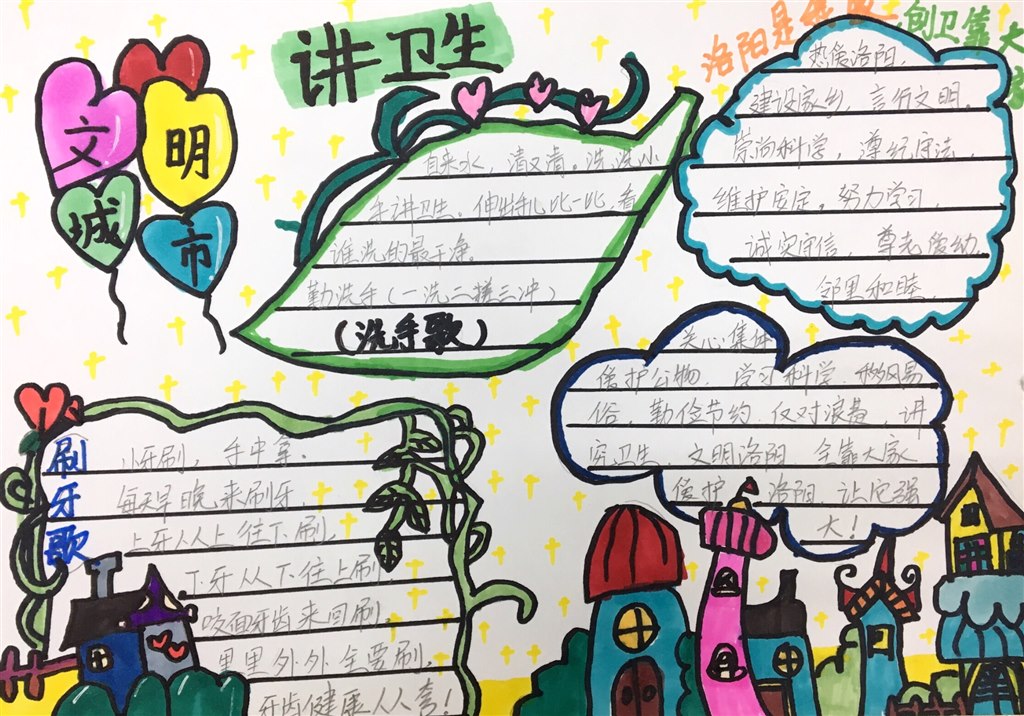 讲卫生
洛阳是我家
创卫靠大家
文
明
城
市
自来水,清又清。洗洗小
手讲卫生。伸出手儿比一比,看
谁洗的最干净。
勤洗手(一洗二搓三冲)
(洗手歌)
热爱洛阳,
建设家乡,言行文明。
崇尚科学,遵纪守法,
维护安定。努力学习,
诚实守信,尊老爱幼
邻里和睦,
关心集体
保护公物,学习科学,移风易
俗,勤俭节约,反对浪费,讲
究卫生 文明洛阳 全靠大家
保护 洛阳,让它强
大!
刷
牙
歌
小牙刷,手中拿。
每天早晚来刷牙,
上牙从上往下刷,
下牙从下往上刷
咬面牙齿来回刷,
里里外外全要刷,
牙齿健康人人夸!